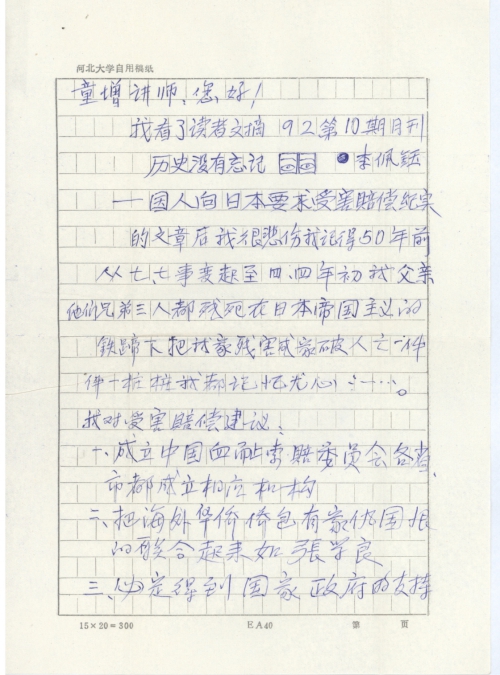 河北大学自用稿纸
童增讲师:您好!
我看了读者文摘92第10期月刊
历史没有忘记 李佩钰
——国人向日本要求受害赔偿纪实
的文章后我很悲伤我记得50年前
从七、七事变起至四、四年初我父亲
他们兄弟三人都残死在日本帝国主义的
铁蹄下把我家残害成家破人亡一件
件一桩桩我都记怀尤心……。
我对受害赔偿建议:
一、成立中国血耻索赔委员会各省、
市都成立相应机构
二、把海外华侨侨包有家仇国恨
的联合起来如張学良
三、必定得到国家政府的支持
15×20=300 EA40 第 页